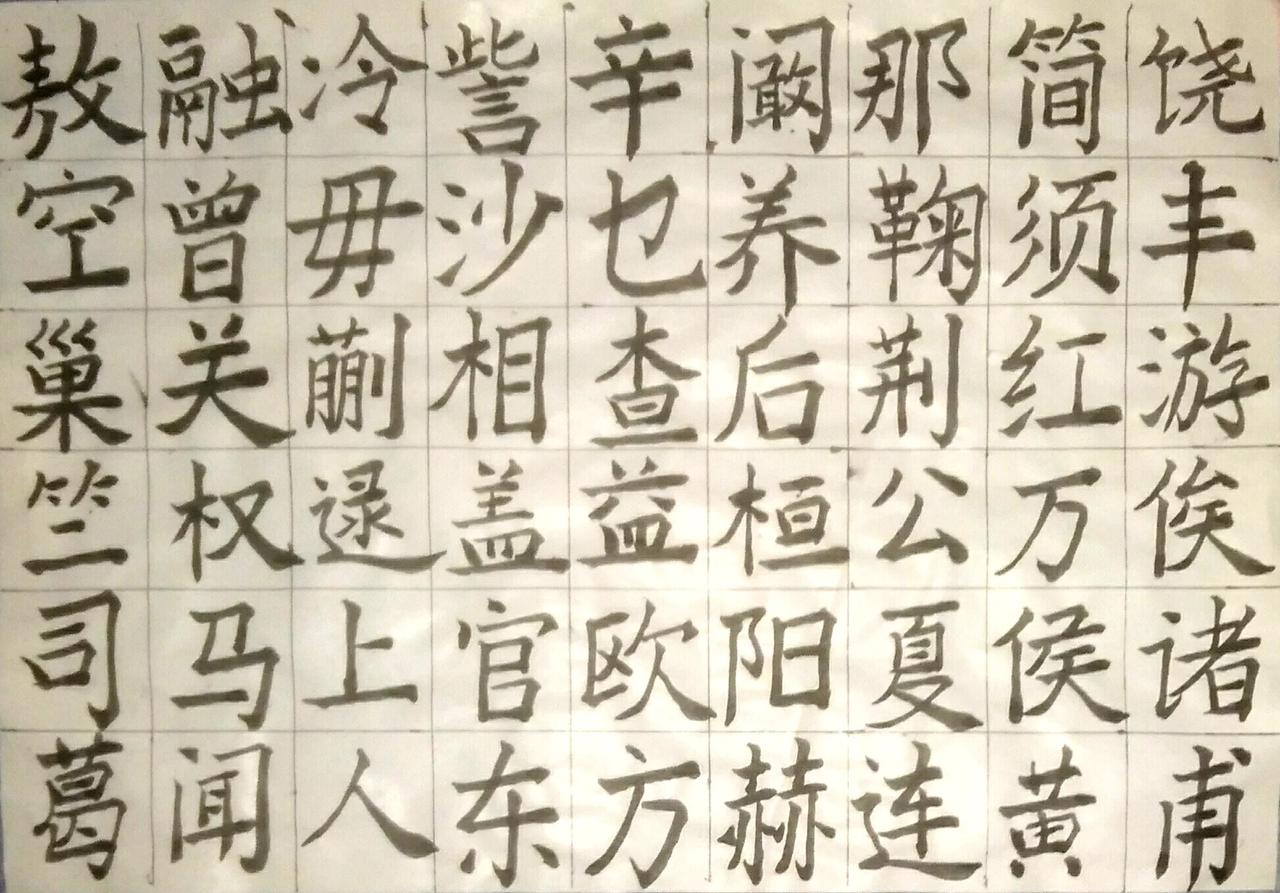 敖融冷訾辛阚那简饶
空曾毋沙乜养鞠须丰
巢关蒯相查后荆红游
竺权逯盖益桓公万俟
司马上官欧阳夏侯诸
葛闻人东方赫连黄甫